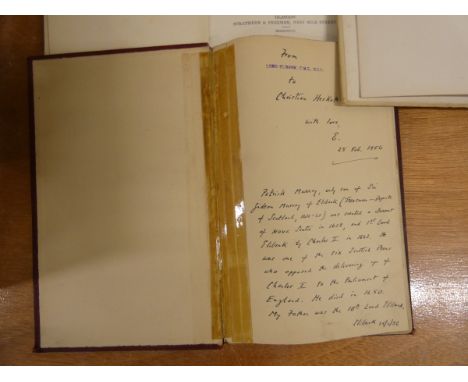 STRATHERN & FREEMAN, WEST NILE STREET
From
to
Christian
with love,
E.
25 Feb. 1956
Patrick Murray, only son of Sir
Gideon Murray of Elibank (Treasurer-Depute
of Scotland, was created a Baronet
of Nova Scotia in 1628, and 1st Lord
Elibank by Charles I in 1643. He
was one of the six Scottish Peers
who opposed the delivering up of
Charles I to the Parliament of
England. He died in 1650.
My Father was the 10th Lord Elibank.
Elibank